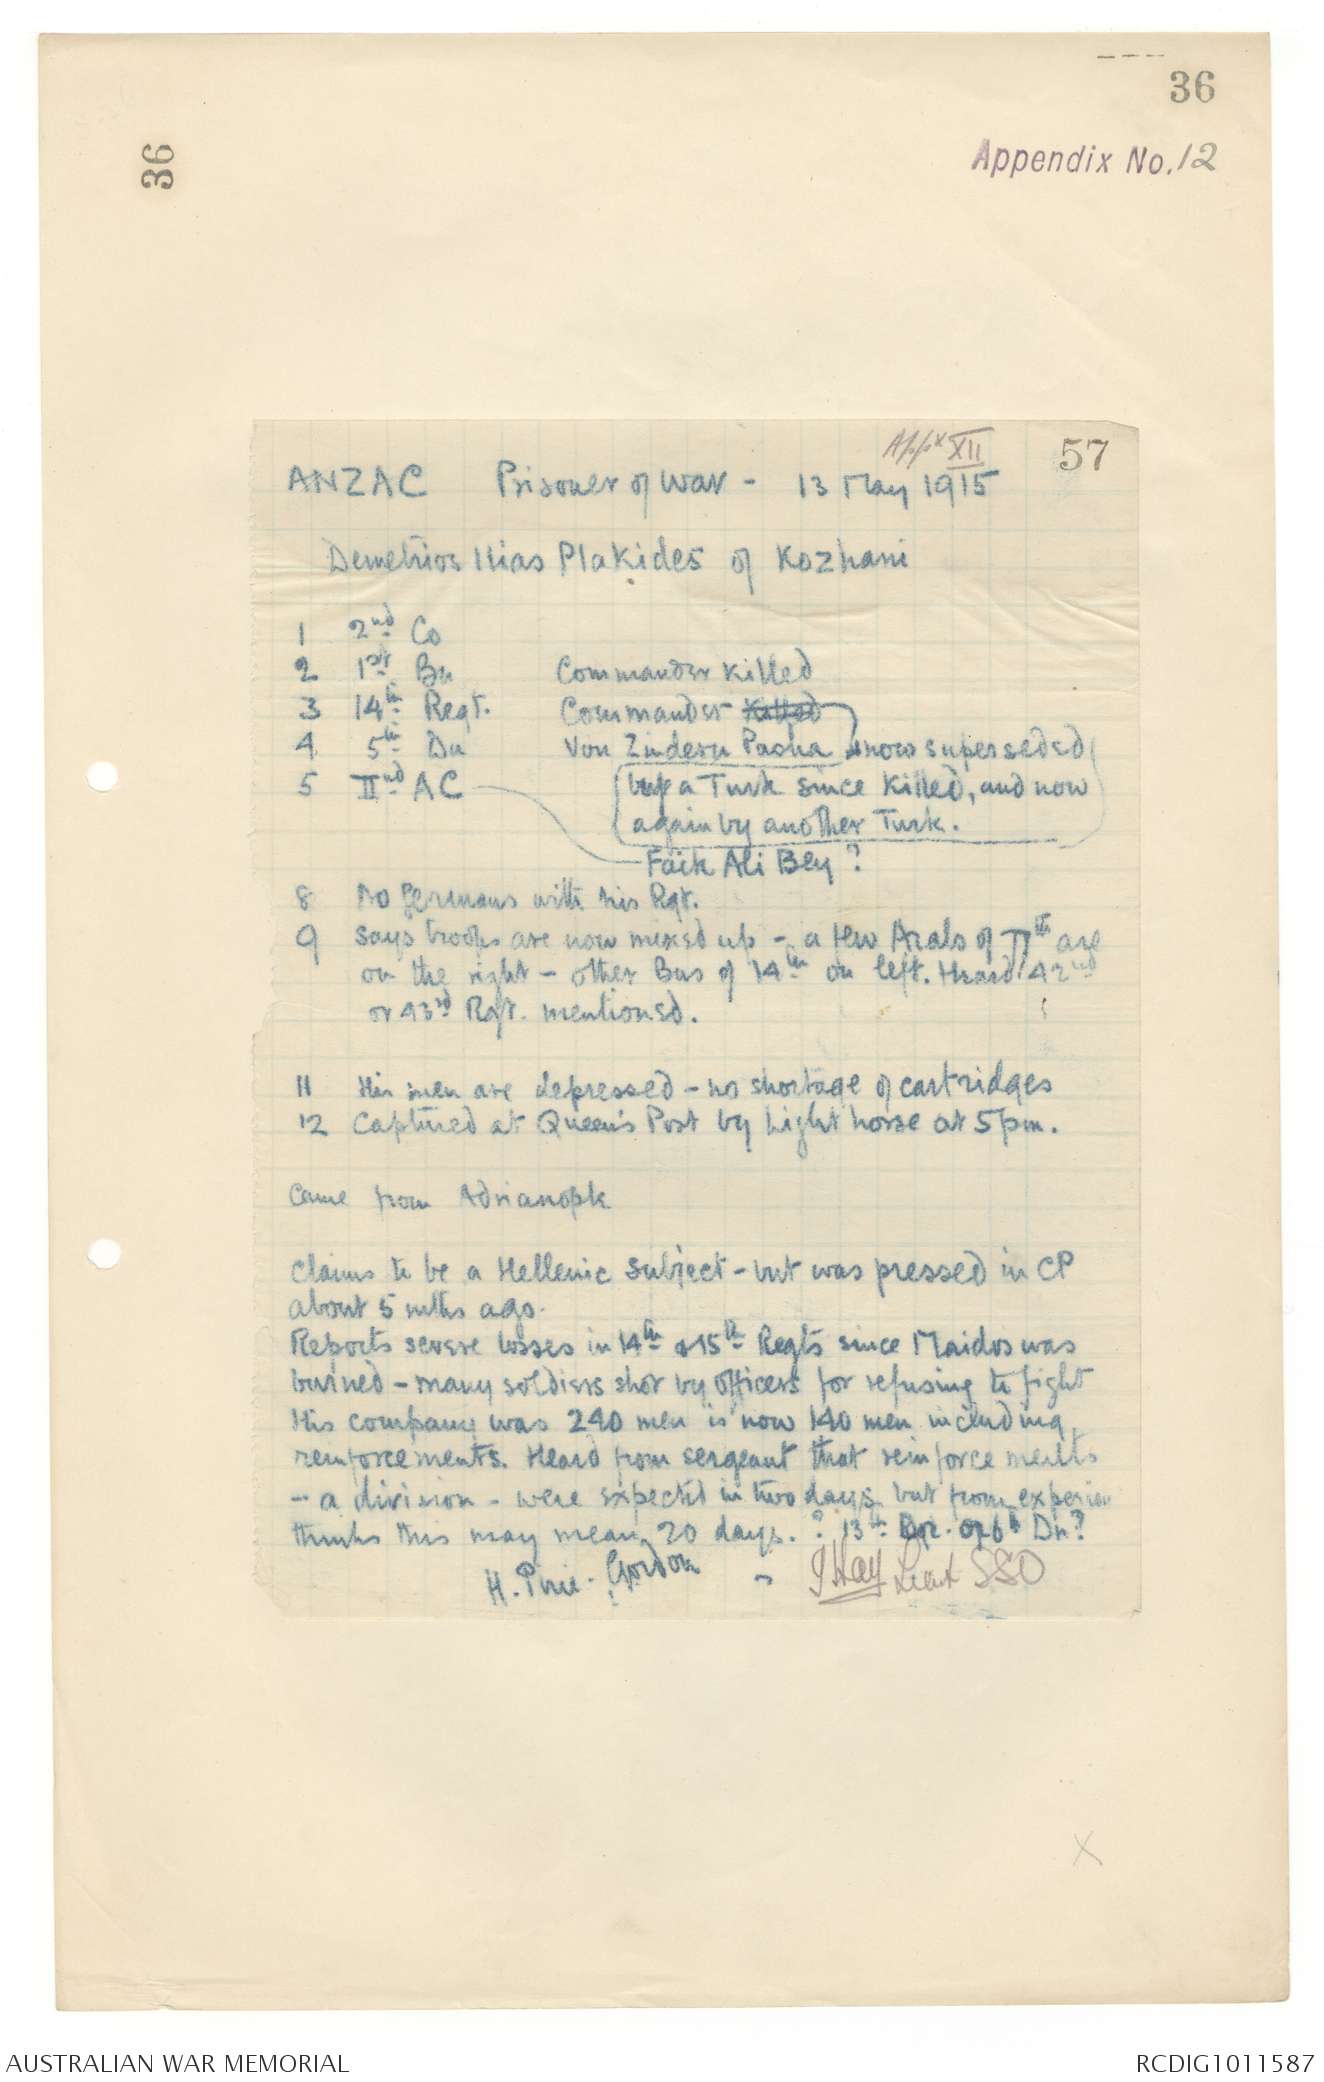 36
36
Appendix No. 12
Appx XII
57
ANZAC Prisoner of War - 13 May 1915
Demetrios Ilias Plakides of Kozhani
1 2nd Co
2 1st Bn Commander killed
3 14th Regt. Commander Killed
4 5th Dn Von Zindern Pasha now superseded
5 IInd AC by a Turk since killed, and now
again by another Turk.
Faik Ali Bey ?
8 No Germans with his Rgt.
9 Says troops are now mixed up - a few Arabs of are
on the right - other Bns of 14th on left. Heard 42nd
or 43rd Rgt. mentioned.
11 His men are depressed - no shortage of cartridges
12 Captured at Queen's Post by Light horse at 5pm.
Came from Adrianople
Claims to be a Hellenic subject - but was pressed in CP
about 5 mths ago.
Reports severe losses in 14th & 15th Regts since Maidos was
burned - many soldiers shot by officers for refusing to fight
His company was 240 men is now 140 men including
reinforcements. Heard from sergeant that reinforcements
- a division - were expected in two days, but from
thinks this may mean 20 days. ? 13th or 6th Dn?
H. Pirie-Gordon J Hay Lieut SSO
X
AUSTRALIAN WAR MEMORIAL
RCDIG1011587